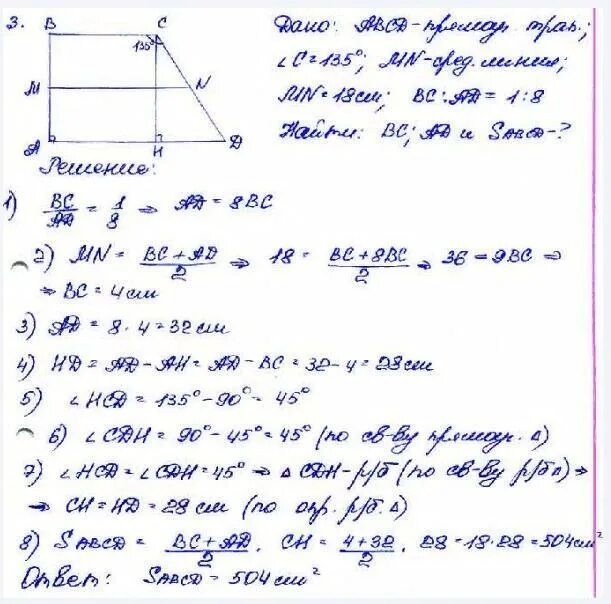 3.
B C
135°
M N
A H D
Дано: ABCD-прямоуг. трап.;
∠C=135°; MN-сред. линия;
MN=18см; BC:AD=1:8
Найти: BC; AD и SABCD-?
Решение:
1) BC/AD = 1/8 ⇒ AD=8BC
2) MN = BC+AD/2 ⇒ 18 = BC+8BC/2 ⇒ 36=9BC ⇒
⇒ BC=4см
3) AD=8·4=32см
4) HD=AD-AH=AD-BC=32-4=28см
5) ∠HCD=135°-90°=45°
6) ∠CDH=90°-45°=45° (по св-ву прямоуг. Δ)
7) ∠HCD=∠CDH=45° ⇒ ΔCDH-р/б (по св-ву р/б Δ) ⇒
⇒ CH=HD=28см (по опр. р/б. Δ)
8) SABCD = BC+AD/2 · CH = 4+32/2 · 28=18·28=504см²
Ответ: SABCD=504см²